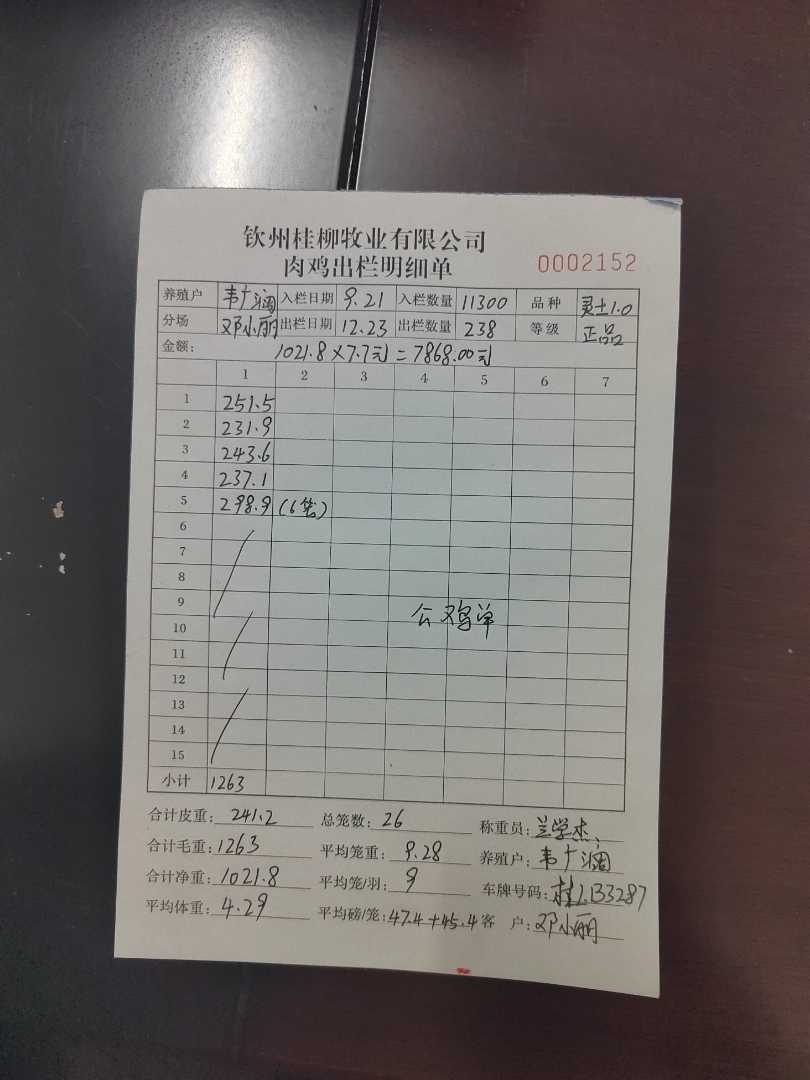 钦州桂柳牧业有限公司
肉鸡出栏明细单 0002152
养殖户 韦广润 入栏日期 9.21 入栏数量 11300 品种 灵土1.0
分场 邓小丽 出栏日期 12.23 出栏数量 238 等级 正品
金额: 1021.8×7.7元=7868.00元
1 2 3 4 5 6 7
1 251.5
2 231.9
3 243.6
4 237.1
5 298.9 (6笼)
6
7
8
9 公鸡单
10
11
12
13
14
15
小计 1263
合计皮重: 241.2 总笼数: 26 称重员: 兰学杰
合计毛重: 1263 平均笼重: 9.28 养殖户: 韦广润
合计净重: 1021.8 平均笼/羽: 9 车牌号码: 桂L133287
平均体重: 4.29 平均磅/笼: 47.4+45.4 客户: 邓小丽